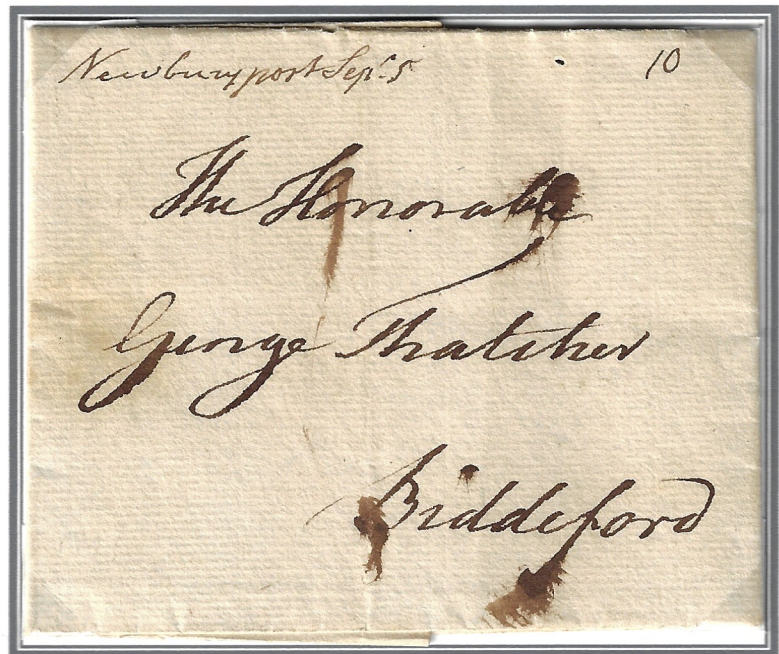 Newburyport Sepr. 5 10
The Honorable
George Thatcher
Biddeford